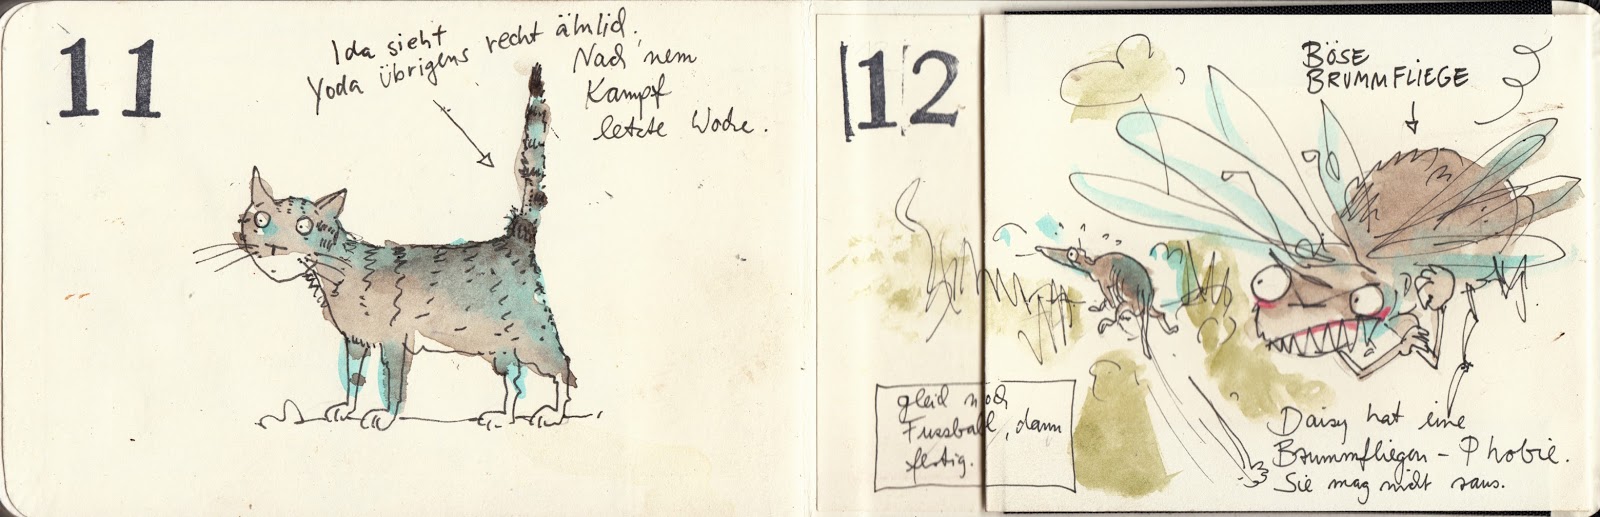 11
Ida sieht
Yoda übrigens recht ähnlich.
Nach nem
Kampf
letzte Woche.
12
BÖSE
BRUMMFLIEGE
gleich noch
Fussball, dann
fertig.
Daisy hat eine
Brummfliegen-Phobie.
Sie mag nicht raus.